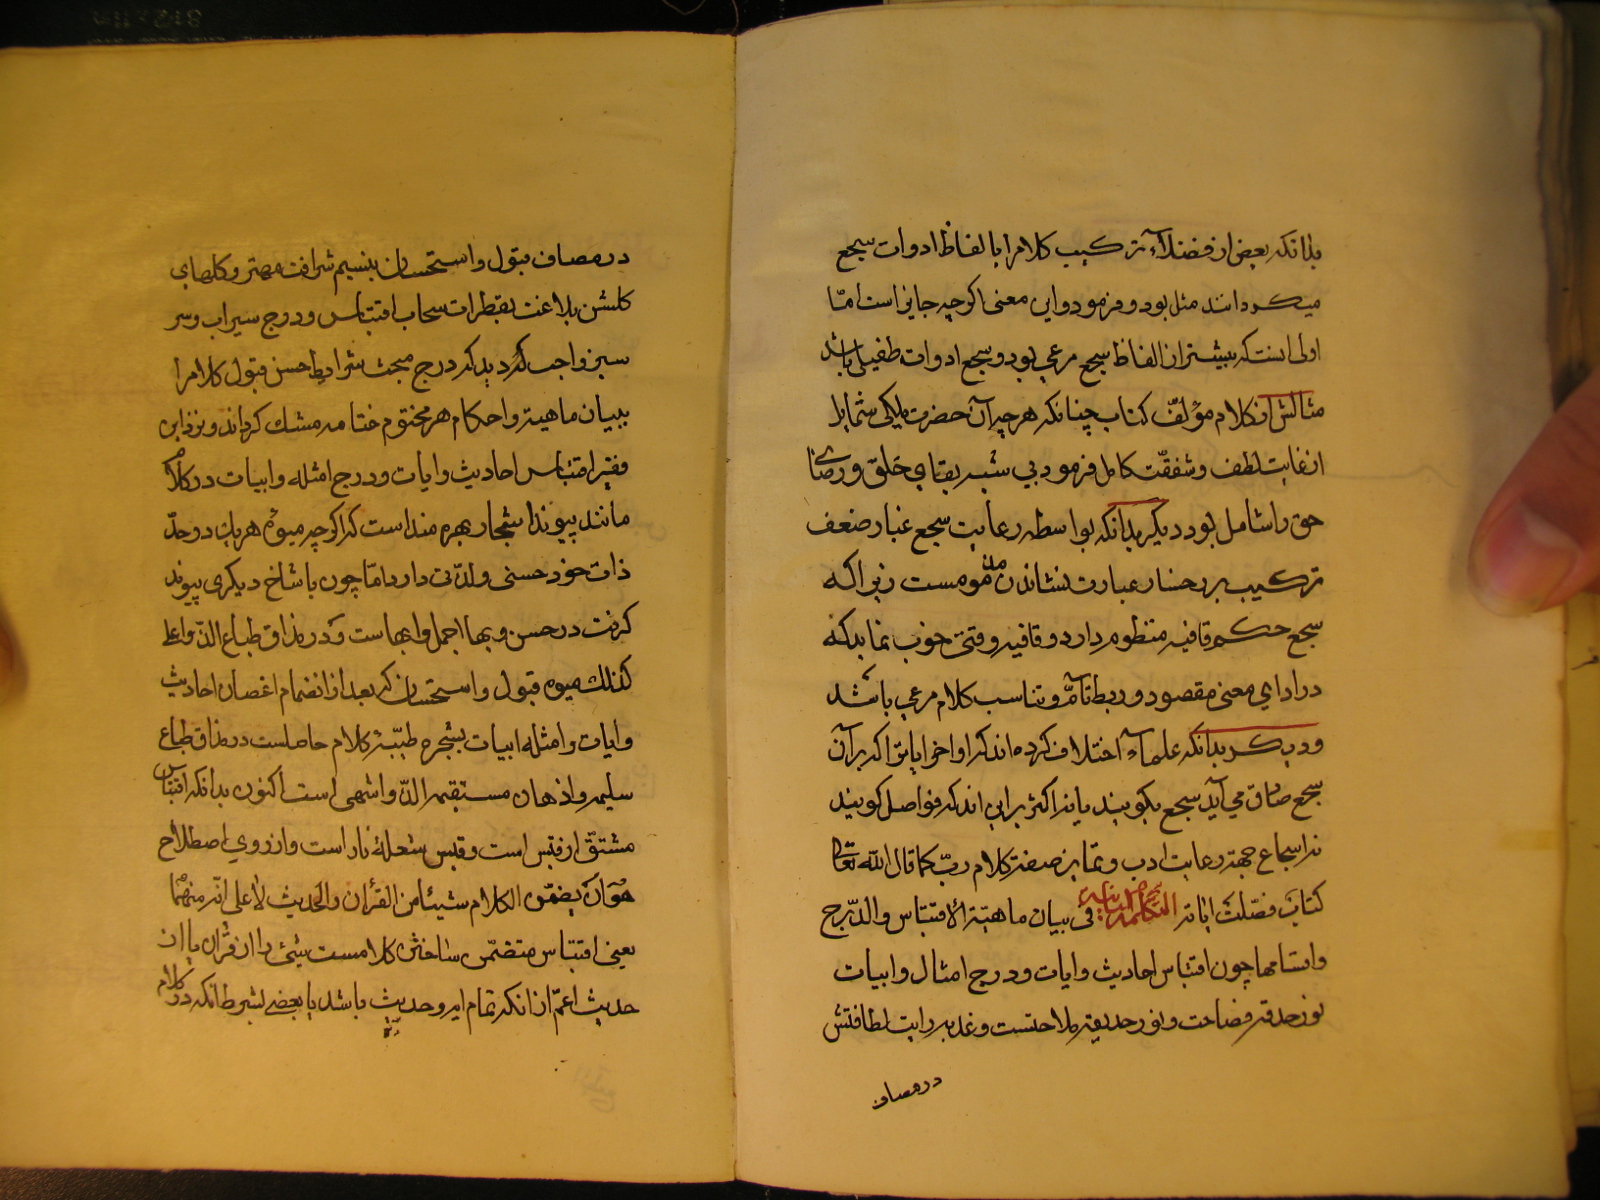 بدانکه بعض از فضلاء ترکیب کلامرا بالفاظ ادوات سجع
میکردانند مثل بود و فرمود و این معنی اکرچه جایز است امّا
اولی انست که بیشتر از الفاظ سجع مرعی بود و سجع ادوات طفیلی باشد
مثالش از کلام مؤلّف کتاب چنانکه هر چه آن حضرت ملکی شمایل
از غایت لطف و شفقّت کامل فرمود بی شبه بقای خلق و رضای
حق را شامل بود دیکر بدانکه بواسطه رعایت سجع غبار ضعف
ترکیب بر رخسار عبارت نشاندن مذمومست زیراکه
سجع حکم قافیه منظوم دارد و قافیه وقتی خوب نماید که
در ادای معنی مقصود و ربط تامّ و تناسب کلام مرعی باشد
و دیکر بدانکه علماء اختلاف کرده اند که اواخر ایاتی اکه بر آن
سجع صادق می آید سجع بکویند یا نه اکثر بر این اند که فواصل کویند
نه اسجاع جهة رعایت ادب و تمایز صفة کلام ربّ کما قال الله تعالی
کتاب فصّلت ایاته التکلمة الثانیة فی بیان ماهیّة الاقتباس والدّرج
واقسامها چون اقتباس احادیث وایات و درج امثال وابیات
نور حدقه فصاحت و نور حدیقه ملاحتست و غدیر رایت لطافتش
در مصاف
در مصاف قبول و استحسان بنسیم شرافت مهتز و کلهای
کلشن بلاغت بقطرات سحاب اقتباس و درج سیراب و سر
سبز واجب کردید که درج مبحث شرایط حسن قبول کلام را
ببیان ماهیة و احکام هر مختوم ختامه مشک کرداند و نزد این
فقیر اقتباس احادیث و ایات و درج امثله و ابیات در کلام
مانند پیوند اشجار بهره منداست که اکرچه میوهٔ هر یک در حدّ
ذات خود حسنی و لذّتی دارد امّا چون با شاخ دیکری پیوند
کرفت در حسن و بها اجمل و ابهاست و در مذاق طباع الذّ و اعلی
کذلک میوه قبول و استحسان که بعد از انضمام اغصان احادیث
و ایات و امثله ابیات بشجره طیّبهٔ کلام حاصلست در مذاق طباع
سلیمه و اذهان مستقیمه الذّ و اشهی است اکنون بدانکه اقتباس
مشتقّ از قبس است و قبس شعلهٔ نار است و از روی اصطلاح
هو ان یضمّن الکلام شیئا من القرأن والحدیث لا علی انّه منهما
یعنی اقتباس متضمّن ساختن کلامست شیئی را از قرآن یا از
حدیث اعمّ از انکه تمام ایه و حدیث باشد یا بعضی بشرط انکه در کلام